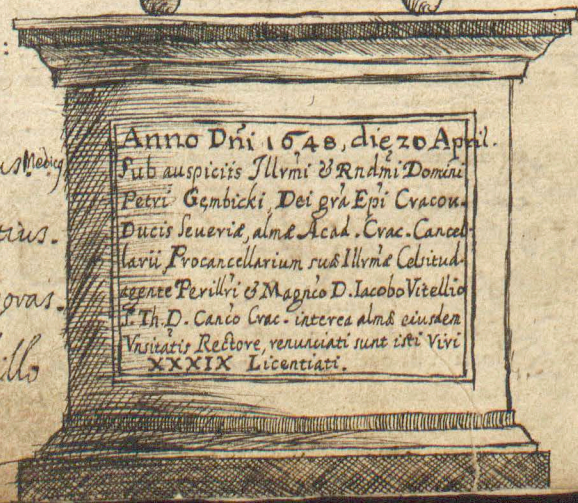 :
Medicq
Anno Dñi 1648, die 20 April.
Sub auspiciis Illrmi & Rndmi Domini
Petri Gembicki, Dei grã Epi Cracou.
Ducis Seueriæ, almæ Acad. Crac. Cancel-
larii, Procancellarium suæ Illrmæ Celsitud.
tius.
agente Perillri & Magnco D. Iacobo Vitellio
ovas.
S. Th. D. Canco Crac. interea almæ eiusdem
Vnsitatis Rectore, renunciati sunt isti Viri
illo
XXXIX Licentiati.